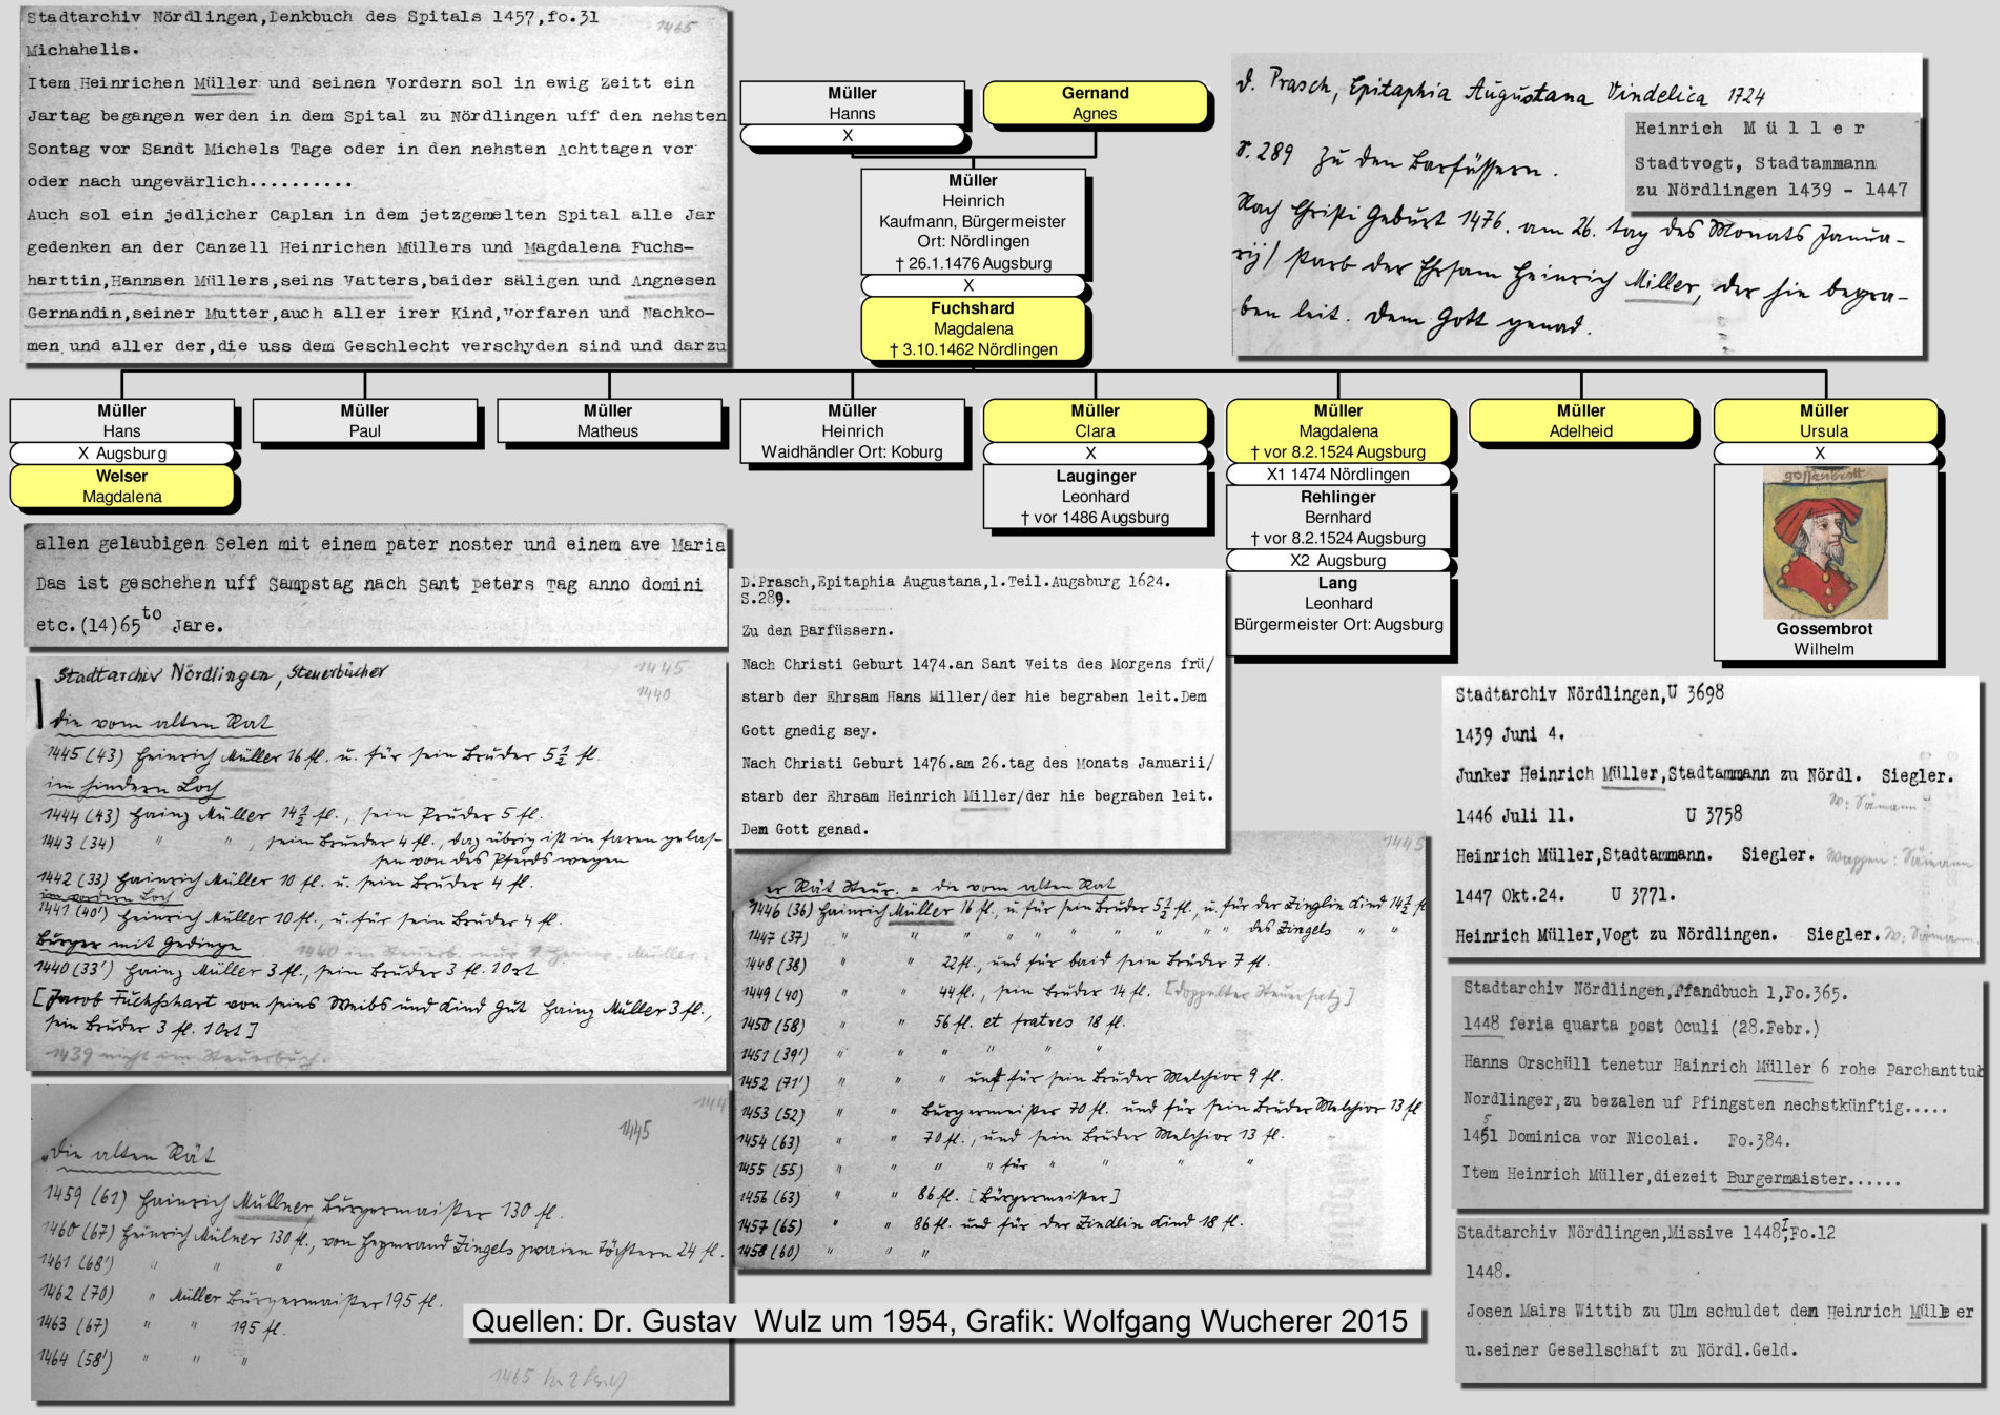 Stadtarchiv Nördlingen,Denkbuch des Spitals 1457,fo.31
1465
Michahelis.
Item Heinrichen Müller und seinen Vordern sol in ewig Zeitt ein
Jartag begangen werden in dem Spital zu Nördlingen uff den nehsten
Sontag vor Sandt Michels Tage oder in den nehsten Achttagen vor
oder nach ungevärlich..........
Auch sol ein jedlicher Caplan in dem jetzgemelten Spital alle Jar
gedenken an der Canzell Heinrichen Müllers und Magdalena Fuchs-
harttin,Hannsen Müllers,seins Vatters,baider säligen und Angnesen
Gernandin,seiner Mutter,auch aller irer Kind,vorfaren und Nachko-
men und aller der,die uss dem Geschlecht verschyden sind und darzu
Müller
Hanns
X
Gernand
Agnes
Müller
Heinrich
Kaufmann, Bürgermeister
Ort: Nördlingen
† 26.1.1476 Augsburg
X
Fuchshard
Magdalena
† 3.10.1462 Nördlingen
d. Prasch, Epitaphia Augustana Vindelica 1724
Heinrich Müller
Stadtvogt, Stadtammann
zu Nördlingen 1439 - 1447
S. 289 Zu den Barfüssern.
Nach Christi Geburt 1476. am 26. tag des Monats Janua-
rij/ starb der Ehrsam Heinrich Miller, der hie begra-
ben leit. Dem Gott genad.
Müller
Hans
X Augsburg
Welser
Magdalena
Müller
Paul
Müller
Matheus
Müller
Heinrich
Waidhändler Ort: Koburg
Müller
Clara
X
Lauginger
Leonhard
† vor 1486 Augsburg
Müller
Magdalena
† vor 8.2.1524 Augsburg
X1 1474 Nördlingen
Rehlinger
Bernhard
† vor 8.2.1524 Augsburg
X2 Augsburg
Lang
Leonhard
Bürgermeister Ort: Augsburg
Müller
Adelheid
Müller
Ursula
X
gossenbrott
Gossembrot
Wilhelm
allen gelaubigen Selen mit einem pater noster und einem ave Maria
Das ist geschehen uff Sampstag nach Sant peters Tag anno domini
etc.(14)65to Jare.
D.Prasch,Epitaphia Augustana,1.Teil.Augsburg 1624.
S.289.
Zu den Barfüssern.
Nach Christi Geburt 1474.an Sant Veits des Morgens frü/
starb der Ehrsam Hans Miller/der hie begraben leit.Dem
Gott gnedig sey.
Nach Christi Geburt 1476.am 26.tag des Monats Januarii/
starb der Ehrsam Heinrich Miller/der hie begraben leit.
Dem Gott genad.
Stadtarchiv Nördlingen, Steuerbücher
1445
1440
Die vom alten Rat
1445 (43) Heinrich Müller 16 fl. u. für sein Bruder 5½ fl.
im hindern Loch
1444 (43) Hainz Müller 14½ fl., sein Pruder 5 fl.
1443 (34) " " , sein Brueder 4 fl., daz übrig ist in faren gelas-
sen von des Pferds wegen
1442 (33) Hainrich Müller 10 fl. u. sein Bruder 4 fl.
im vordern Loch
1441 (40') Heinrich Müller 10 fl., u. für sein Bruder 4 fl.
Burger mit Gedinge
1440 (33') Hainz Müller 3 fl., sein Bruder 3 fl. 1 Ort
[Jacob Fuchshart von seins Weibs und Kind Gut Hainz Müller 3 fl.,
sein Bruder 3 fl. 1 Ort]
1439 nicht im Steuerbuch.
er Rät Steur. = die vom alten Rat
1445
1446 (36) Hainrich Müller 16 fl., u. für sein Bruder 5½ fl., u. für der Zinglin Kind 14½ fl
1447 (37) " " " " " " " " des Zingels " "
1448 (38) " " 22 fl., und für baid sein Brüder 7 fl.
1449 (40) " " 44 fl., sein Bruder 14 fl. [doppelter Steuersatz]
1450 (58) " " 56 fl. et fratres 18 fl.
1451 (39') " " " " "
1452 (71') " " " und für sein Bruder Melchior 9 fl.
1453 (52) " " Burgermeister 70 fl. und für sein Bruder Melchior 13 fl
1454 (63) " " 70 fl., und sein Bruder Melchior 13 fl.
1455 (55) " " " " für " " " "
1456 (63) " " 86 fl. [Bürgermeister]
1457 (65) " " 86 fl. und für der Zindlin Kind 18 fl.
1458 (60) " " "
1445
Die alten Rät
1459 (61) Hainrich Müllner Burgermaister 130 fl.
1460 (67) Heinrich Mülner 130 fl., von Zingels zwaien Töchtern 24 fl.
1461 (68') " " "
1462 (70) " Müller Burgermaister 195 fl.
1463 (67) " " 195 fl.
1464 (58') " " "
1465
Stadtarchiv Nördlingen,U 3698
1439 Juni 4.
Junker Heinrich Müller,Stadtammann zu Nördl. Siegler.
1446 Juli 11. U 3758
Heinrich Müller,Stadtammann. Siegler.
1447 Okt.24. U 3771.
Heinrich Müller,Vogt zu Nördlingen. Siegler.
Stadtarchiv Nördlingen,Pfandbuch 1,Fo.365.
1448 feria quarta post Oculi (28.Febr.)
Hanns Orschüll tenetur Hainrich Müller 6 rohe Parchanttuch
Nordlinger,zu bezalen uf Pfingsten nechstkünftig.....
1451 Dominica vor Nicolai. Fo.384.
Item Heinrich Müller,diezeit Burgermaister......
Stadtarchiv Nördlingen,Missive 1448I,Fo.12
1448.
Josen Mairs Wittib zu Ulm schuldet dem Heinrich Müller
u.seiner Gesellschaft zu Nördl.Geld.
Quellen: Dr. Gustav Wulz um 1954, Grafik: Wolfgang Wucherer 2015